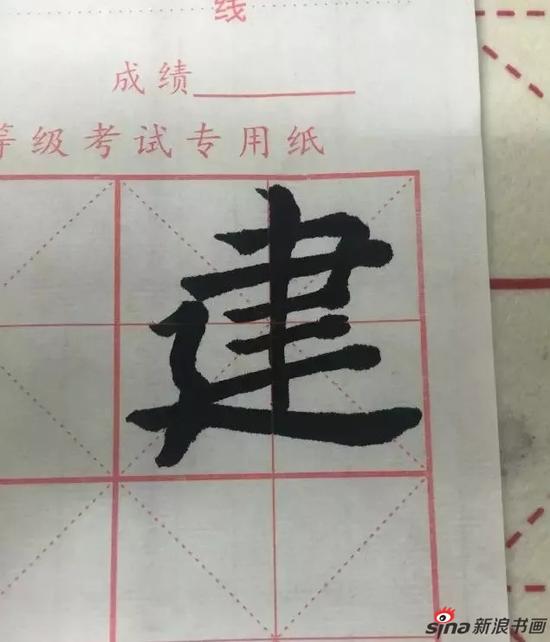 线
成绩
等级考试专用纸
建
sina新浪书画